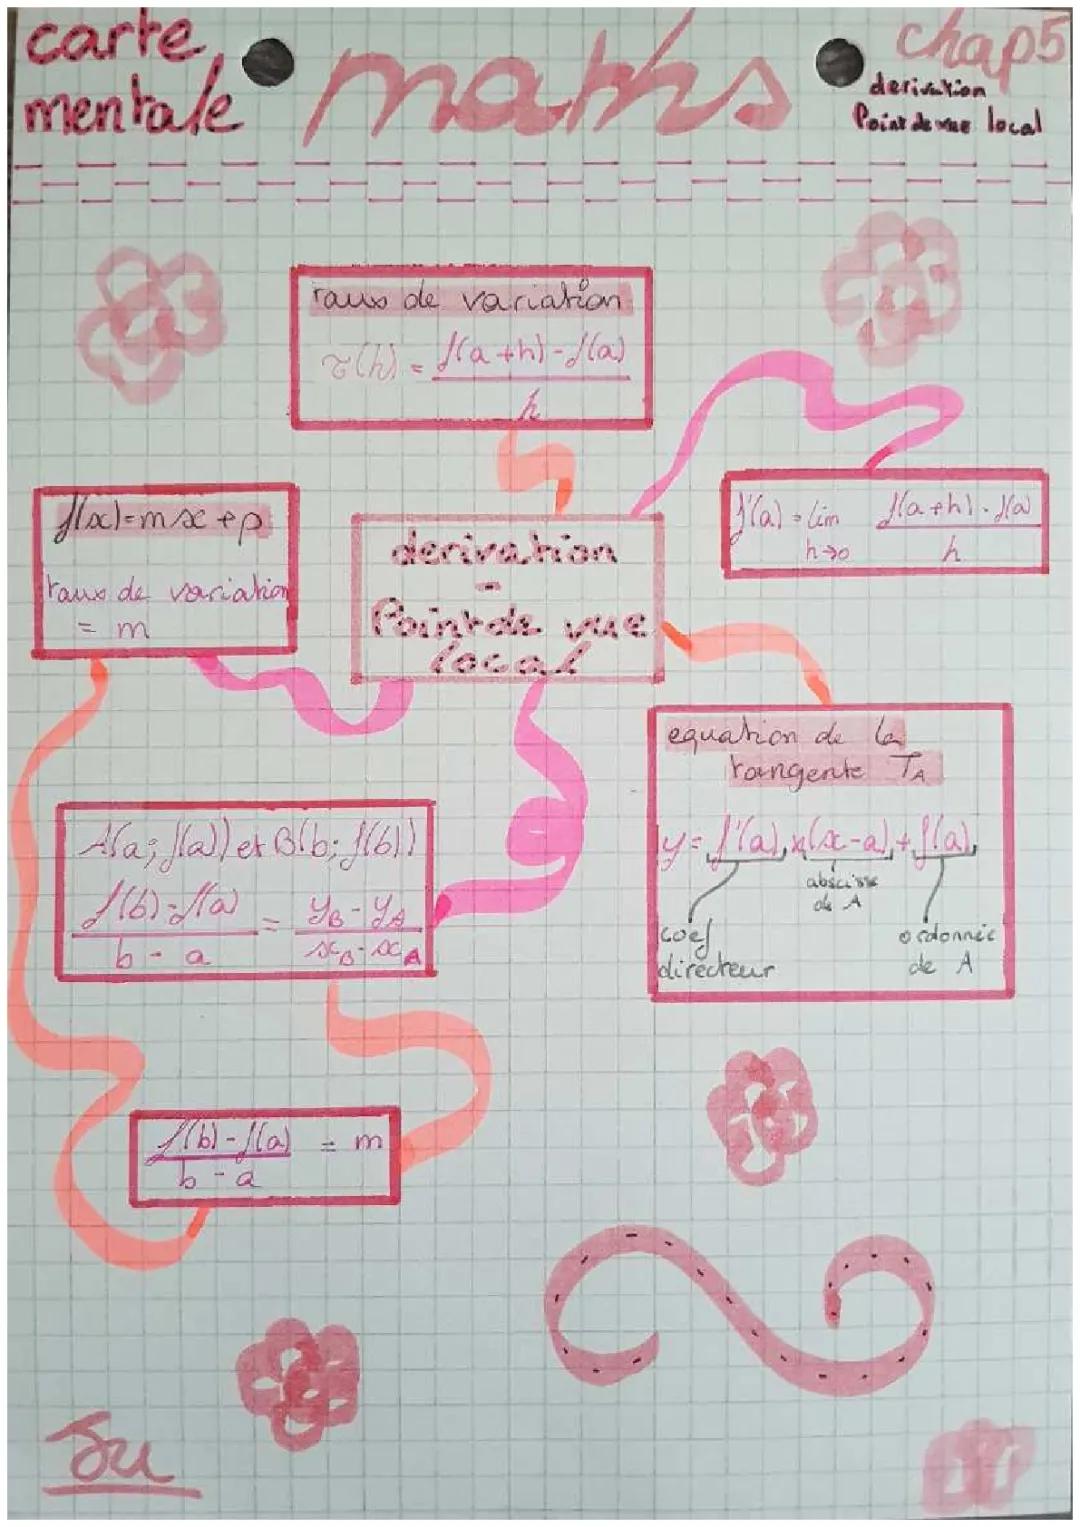 carte
mentale
maths
chap5
derivation
Point de vue local
taux de variation
τ(h) = f(a+h)-f(a)
h
f(x)=mx+p
taux de variation
= m
derivation
-
Point de vue
local
f'(a) = lim f(a+h)-f(a)
h→0 h
equation de la
tangente T_A
y = f'(a) x(x-a) + f(a)
abscisse
de A
coef
directeur
ordonnée
de A
A(a; f(a)) et B(b; f(b))
f(b)-f(a) = y_B - y_A
b - a x_B - x_A
f(b)-f(a) = m
b - a